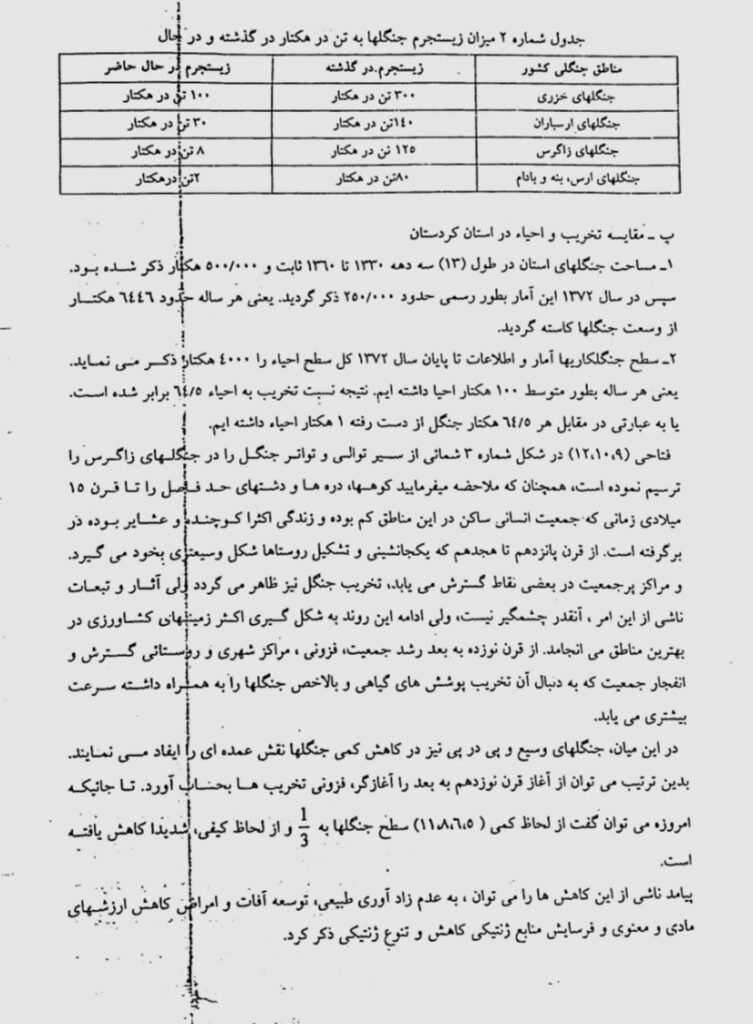 جدول شماره ۲ میزان زیستجرم جنگلها به تن در هکتار در گذشته و در حال
مناطق جنگلی کشور	زیستجرم.در گذشته	زیستجرم در حال حاضر
جنگلهای خزری	۳۰۰ تن در هکتار	۱۰۰ تن در هکتار
جنگلهای ارسباران	۱۴۰تن در هکتار	۳۰ تن در هکتار
جنگلهای زاگرس	۱۲۵ تن در هکتار	۸ تن در هکتار
جنگلهای ارس، بنه و بادام	۸۰تن در هکتار	۲تن درهکتار
پ ـ مقایسه تخریب و احیاء در استان کردستان
۱ـ مساحت جنگلهای استان در طول (۱۳) سه دهه ۱۳۳۰ تا ۱۳۶۰ ثابت و ۵۰۰/۰۰۰ هکتار ذکر شده بود.
سپس در سال ۱۳۷۲ این آمار بطور رسمی حدود ۲۵۰/۰۰۰ ذکر گردید. یعنی هر ساله حدود ۶۴۴۶ هکتـار
از وسعت جنگلها کاسته گردید.
۲ـ سطح جنگلکاریها آمار و اطلاعات تا پایان سال ۱۳۷۲ کل سطح احیاء را ۴۰۰۰ هکتار ذکـر مـی نماید.
یعنی هر ساله بطور متوسط ۱۰۰ هکتار احیا داشته ایم. نتیجه نسبت تخریب به احیاء ۶۴/۵ برابر شده اسـت.
یا به عبارتی در مقابل هر ۶۴/۵ هکتار جنگل از دست رفته ۱ هکتار احیاء داشته ایم.
فتاحی (۱۲،۱۰،۹) در شکل شماره ۳ شمائی از سیر توالی و تواتر جنگـل را در جنگلـهای زاگـرس را
ترسیم نموده است، همچنان که ملاحضه میفرمایید کوهـها، دره ها و دشتهای حد فـاصل را تـا قـرن ۱۵
میلادی زمانی که جمعیت انسانی ساکن در این مناطق کم بوده و زندگی اکثرا کـوچنـده و عشـایر بـوده در
برگرفته است. از قرن پانزدهم تا هجدهم که یکجانشینی و تشکیل روستاها شکل وسیعتری بخود می گیرد.
و مراکز پرجمعیت در بعضی نقاط گسترش می یابد، تخریب جنگل نیز ظاهر می گردد ولی آثـار و تبعـات
ناشی از این امر ، آنقدر چشمگیر نیست، ولی ادامه این روند به شکل گیری اکثر زمینهای کشاورزی در
بهترین مناطق می انجامد. از قرن نوزده به بعد رشد جمعیت، فزونی ، مراکز شهری و روستائی گسـترش و
انفجار جمعیت که به دنبال آن تخریب پوشش های گیاهی و بالاخص جنگلها را به همـراه داشـته سـرعت
بیشتری می یابد.
در این میان، جنگلهای وسیع و پی در پی نیز در کاهش کمی جنگلها نقش عمده ای را ایفاد مـی نمـایند.
بدین ترتیب می توان از آغاز قرن نوزدهم به بعد را آغازگر، فزونی تخریب هـا بحساب آورد. تـا جائیکـه
امروزه می توان گفت از لحاظ کمی ( ۱۱،۸،۶،۵) سطح جنگلها به 1/3 و از لحاظ کیفی، شدیدا کاهش یافتـه
است.
پیامد ناشی از این کاهش ها را می توان ، به عدم زاد آوری طبیعی، توسعه آفات و امراض کاهش ارزشـهای
مادی و معنوی و فرسایش منابع ژنتیکی کاهش و تنوع ژنتیکی ذکر کرد.